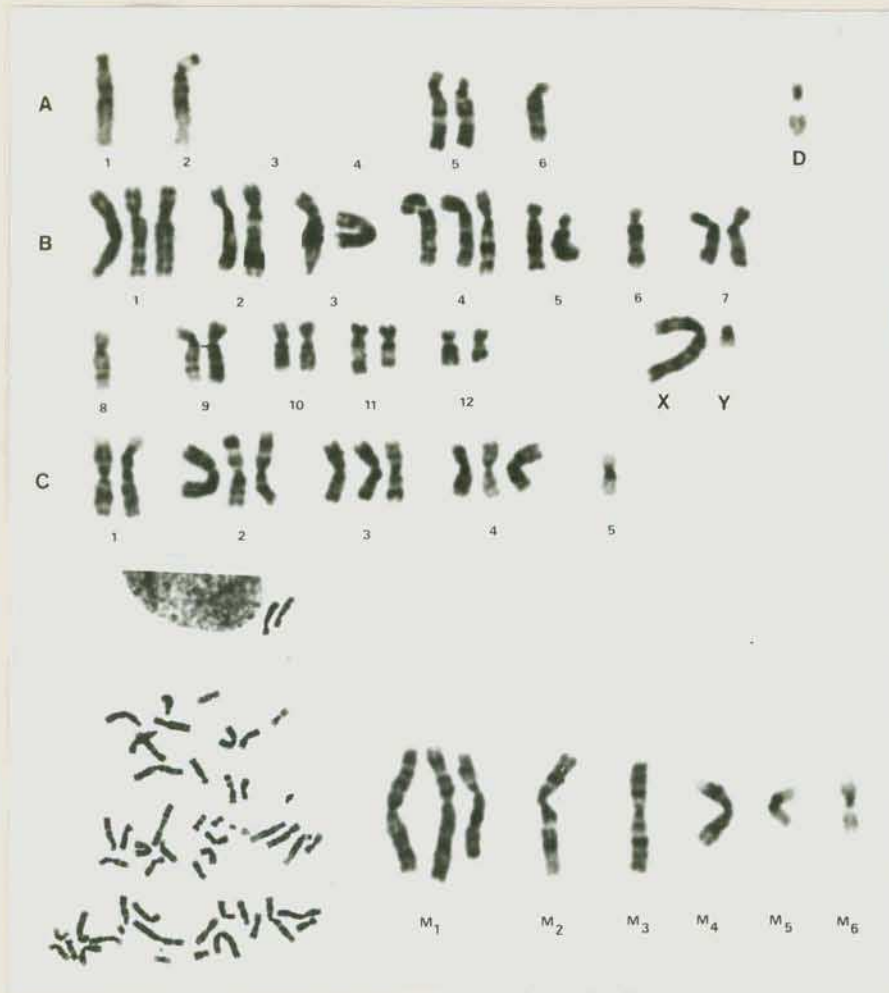 A
1 2 3 4 5 6 D
B
1 2 3 4 5 6 7
8 9 10 11 12 X Y
C
1 2 3 4 5
M1 M2 M3 M4 M5 M6